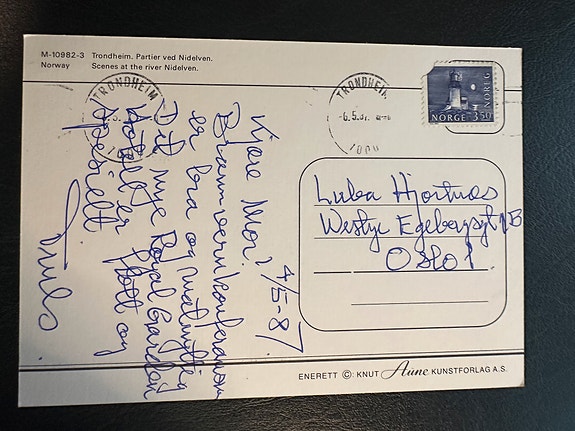 M-10982-3 Trondheim. Partier ved Nidelven.
Norway Scenes at the river Nidelven.
TRONDHEIM
TRONDHEIM
-6.5.87
NORGE 350
NOREG
4/5-87
Kjære Mor!
Brannvernkonferansen
er bra og matnyttig
Det nye Royal Garden
Hotell er flott og
spesielt
Truls.
Luba Hjortnæs
Westye Egebergsgt 1B
Oslo 1.
ENERETT ©: KNUT Aune KUNSTFORLAG A.S.